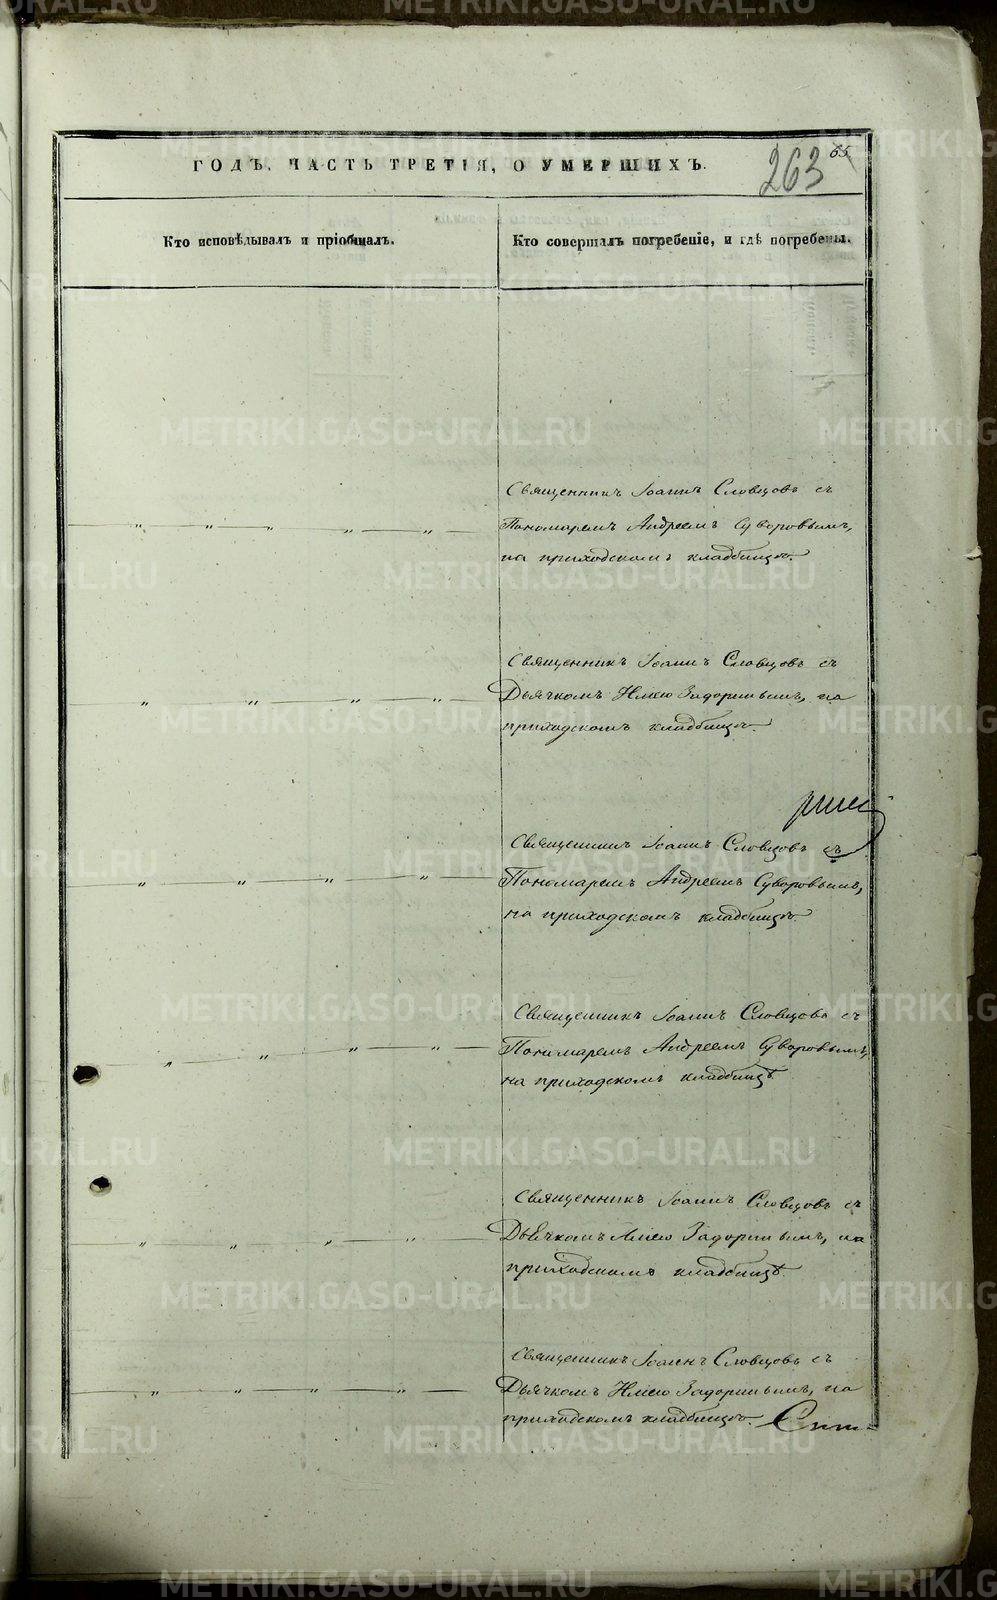 ГОДЪ, ЧАСТЬ ТРЕТІЯ, О УМЕРШИХЪ.
263
65.
Кто исповѣдывалъ и пріобщалъ.
Кто совершалъ погребеніе, и гдѣ погребены.
Священникъ Іоаннъ Словцовъ съ
Пономаремъ Андреемъ Суворовымъ,
на приходскомъ кладбищѣ.
Священникъ Іоаннъ Словцовъ съ
Дьячкомъ Задоринымъ, на
приходскомъ кладбищѣ.
Священникъ Іоаннъ Словцовъ съ
Пономаремъ Андреемъ Суворовымъ,
на приходскомъ кладбищѣ.
Священникъ Іоаннъ Словцовъ съ
Пономаремъ Андреемъ Суворовымъ,
на приходскомъ кладбищѣ.
Священникъ Іоаннъ Словцовъ съ
Дьячкомъ Задоринымъ, на
приходскомъ кладбищѣ.
Священникъ Іоаннъ Словцовъ съ
Дьячкомъ Задоринымъ, на
приходскомъ кладбищѣ.
METRIKI.GASO-URAL.RU